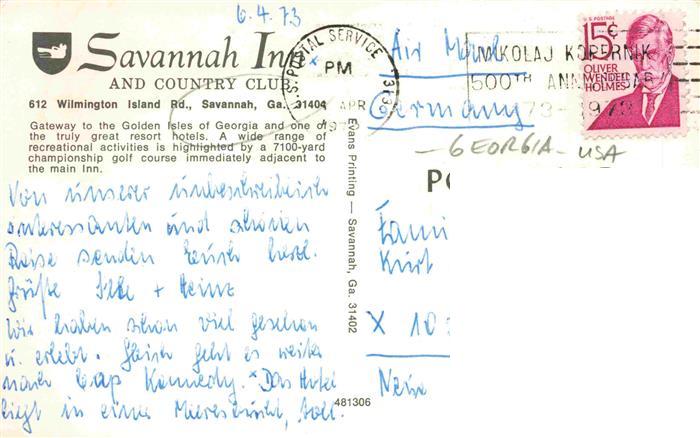 6.4.73
Savannah Inn
AND COUNTRY CLUB
612 Wilmington Island Rd., Savannah, Ga. 31404
Gateway to the Golden Isles of Georgia and one of
the truly great resort hotels. A wide range of
recreational activities is highlighted by a 7100-yard
championship golf course immediately adjacent to
the main Inn.
Von unserer unbeschreiblich
interessanten und schönen
Reise senden Euch herzl.
Grüße Ilse + Heinz
Wir haben schon viel gesehen
u. erlebt. Gleich geht es weiter
nach Cap Kennedy. * Das Hotel
liegt in einer Meeresbucht, toll.
Evans Printing — Savannah, Ga. 31402
481306
U.S. POSTAL SERVICE
PM
APR
313
MIKOLAJ KOPERNIK
500TH ANNI
1473-1973
15¢
U.S. POSTAGE
OLIVER
WENDELL
HOLMES
Air
Germany
- GEORGIA - USA
PO
Fami
Kurt
X 10